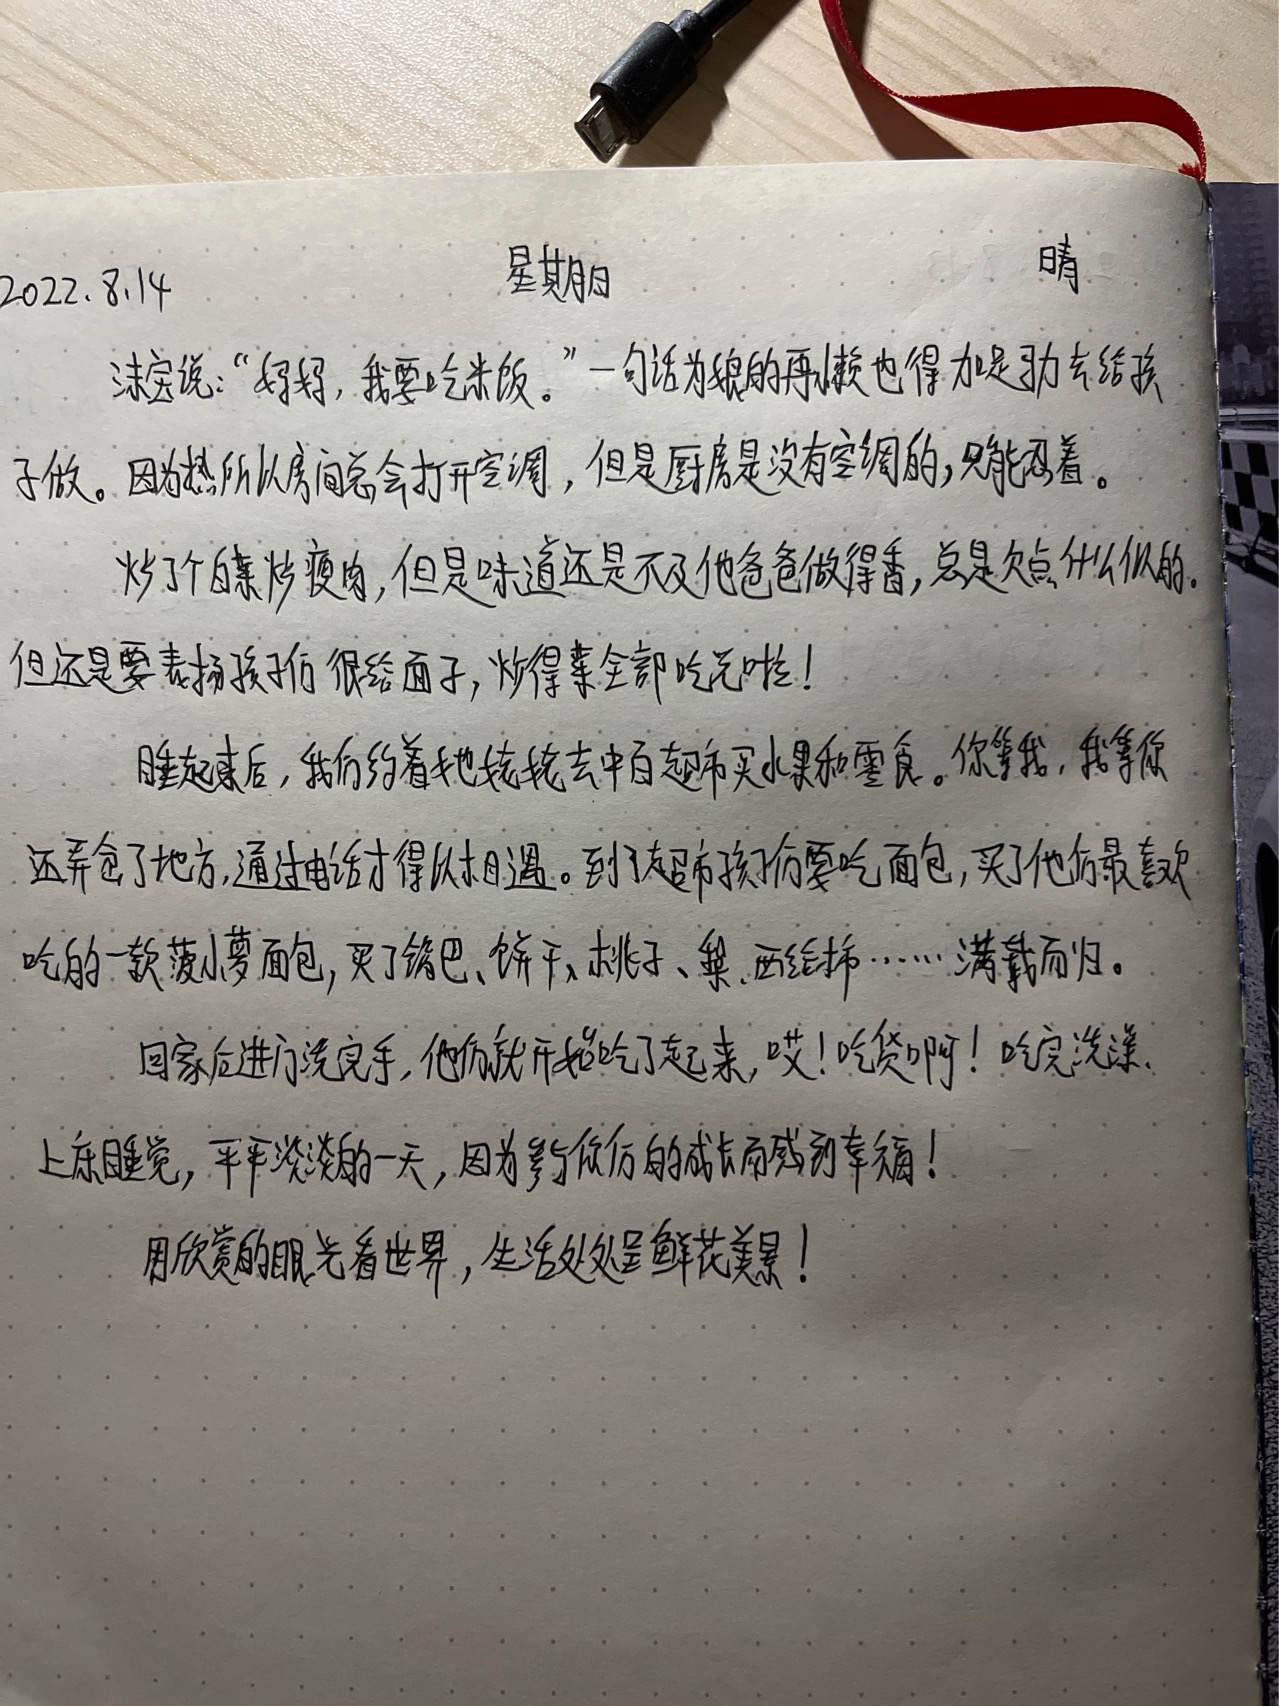 2022.8.14 星期日 晴
沫宝说:“妈妈,我要吃米饭。”一句话为娘的再懒也得加足马力去给孩
子做。因为热所以房间总会打开空调,但是厨房是没有空调的,只能忍着。
炒了个白菜炒瘦肉,但是味道还是不及他爸爸做得香,总是欠点什么似的。
但还是要表扬孩子们很给面子,炒得菜全部吃光啦!
睡起来后,我们约着她姥姥去中百超市买水果和零食。你等我,我等你
还弄岔了地方,通过电话才得以相遇。到了超市孩子们要吃面包,买了他们最喜欢
吃的一款菠小萝面包,买了锅巴、饼干、桃子、梨、西红柿……满载而归。
回家后进门洗完手,他们就开始吃了起来,哎!吃货啊!吃完洗澡、
上床睡觉,平平淡淡的一天,因为参与你们的成长而感到幸福!
用欣赏的眼光看世界,生活处处呈鲜花美景!